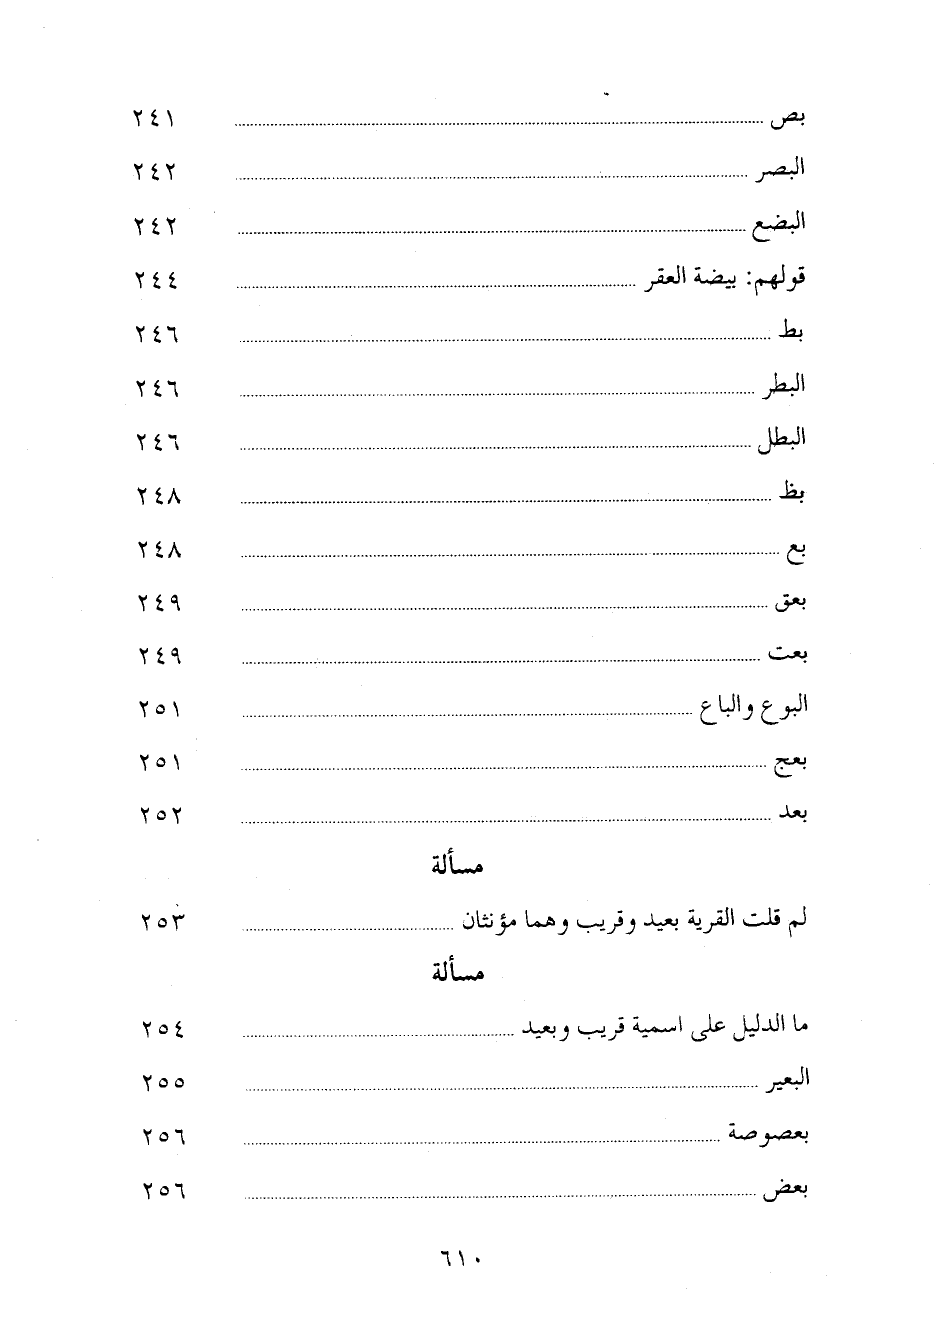 بص ........ ٢٤١
البصر ........ ٢٤٢
البضع ........ ٢٤٢
قولهم: بيضة العقر ........ ٢٤٤
بط ........ ٢٤٦
البطر ........ ٢٤٦
البطل ........ ٢٤٦
بظ ........ ٢٤٨
بع ........ ٢٤٨
بعق ........ ٢٤٩
بعت ........ ٢٤٩
البوع والباع ........ ٢٥١
بعج ........ ٢٥١
بعد ........ ٢٥٢
مسألة
لم قلت القرية بعيد وقريب وهما مؤنثان ........ ٢٥٣
مسألة
ما الدليل على اسمية قريب وبعيد ........ ٢٥٤
البعير ........ ٢٥٥
بعصوصة ........ ٢٥٦
بعض ........ ٢٥٦
٦١٠